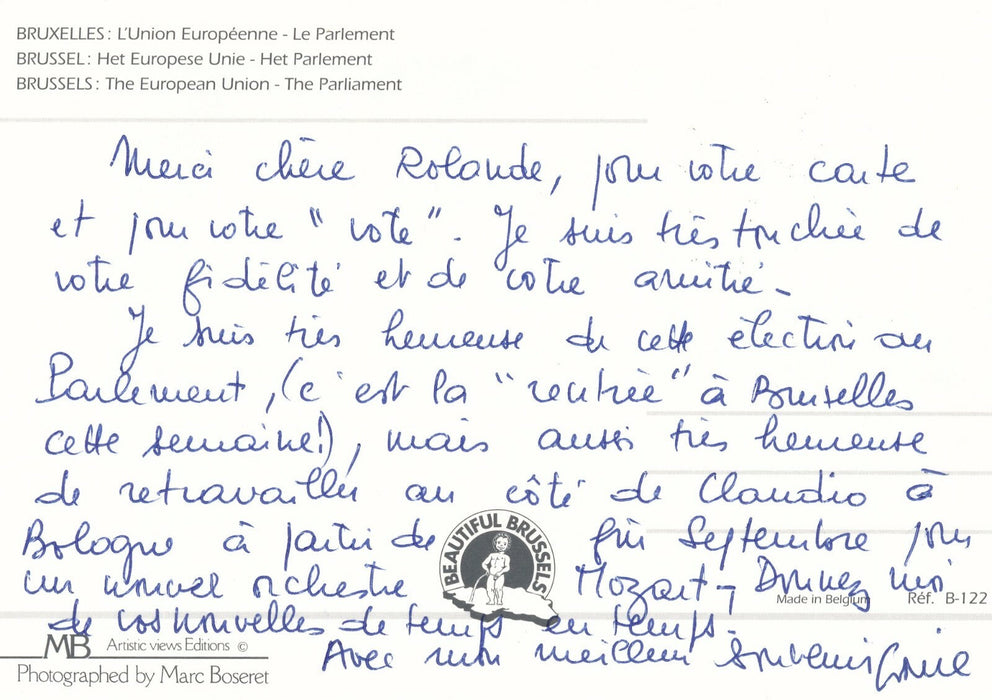 BRUXELLES : L'Union Européenne - Le Parlement
BRUSSEL : Het Europese Unie - Het Parlement
BRUSSELS : The European Union - The Parliament
Merci chère Rolande, pour votre carte
et pour votre "vote". Je suis très touchée de
votre fidélité et de votre amitié -
Je suis très heureuse de cette élection au
Parlement, (c'est la "rentrée" à Bruxelles
cette semaine!), mais aussi très heureuse
de retravailler au côté de Claudio à
Bologne à partir de fin Septembre pour
BEAUTIFUL BRUSSELS
un nouvel orchestre Mozart - Donnez moi
Made in Belgium Réf. B-122
de vos nouvelles de temps en temps.
MB Artistic views Editions ©
Avec mon meilleur souvenir
Photographed by Marc Boseret